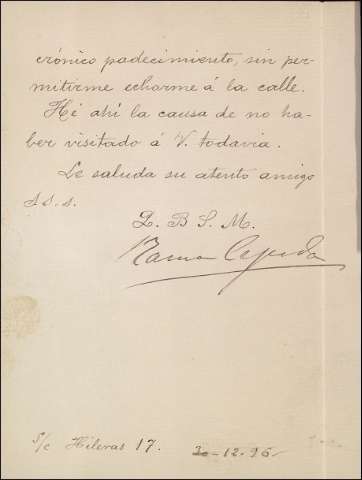 crónico padecimiento, sin per-
mitirme echarme á la calle.
Hé ahí la causa de no ha-
ber visitado á V. todavia.
Le saluda su atento amigo
S. S. S.
Q. B. S. M.
Ramon Cepeda
S/c Hileras 17. 30-12-95